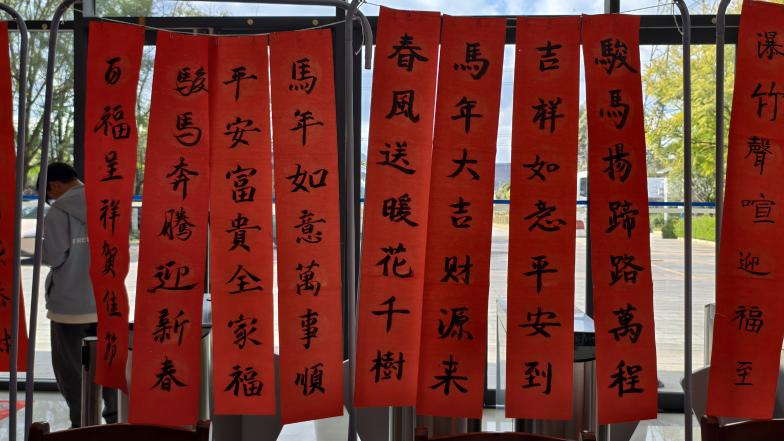 瀑竹聲喧迎福至
駿馬揚蹄路萬程
吉祥如意平安到
馬年大吉財源来
春風送暖花千樹
馬年如意萬事順
平安富貴全家福
駿馬奔騰迎新春
百福呈祥賀佳節